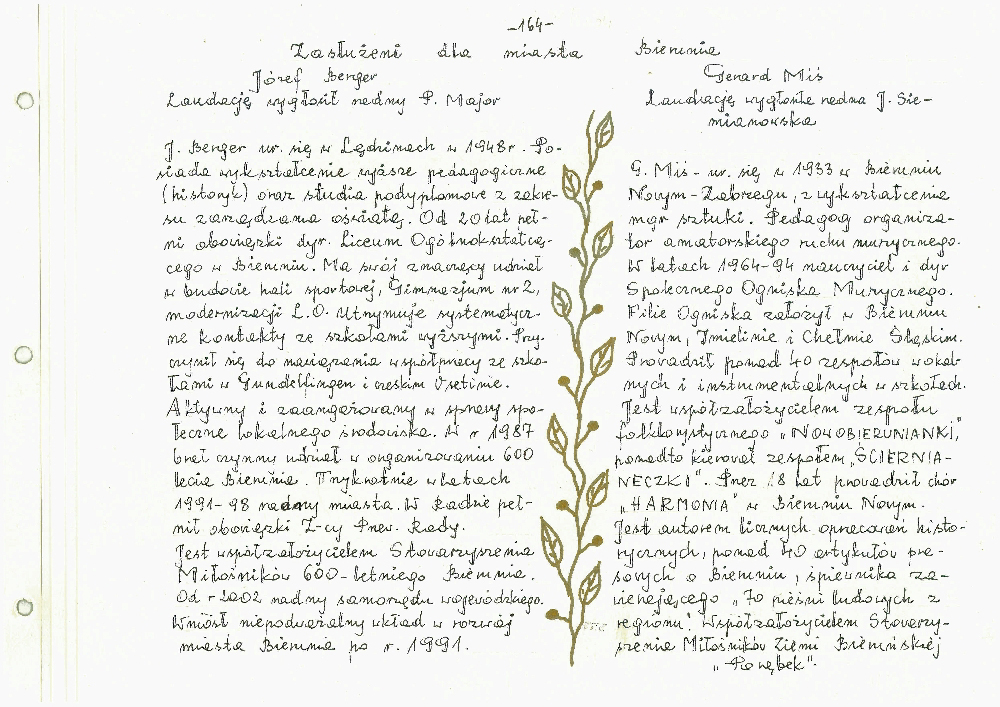 -164-
Zasłużeni dla miasta Bierunia
Józef Berger
Laudację wygłosił radny P. Major
J. Berger ur. się w Lędzinach w 1948 r. Po-
siada wykształcenie wyższe pedagogiczne
(historyk) oraz studia podyplomowe z zakre-
su zarządzania oświatą. Od 20 lat peł-
ni obowiązki dyr. Liceum Ogólnokształcą-
cego w Bieruniu. Ma swój znaczący udział
w budowie hali sportowej, Gimnazjum nr 2,
modernizacji L.O. Utrzymuje systematycz-
ne kontakty ze szkołami wyższymi. Przy-
czynił się do nawiązania współpracy ze szko-
łami w Gundelfingen i czeskim Vsetinie.
Aktywny i zaangażowany w sprawy spo-
łeczne lokalnego środowiska. W r 1987
brał czynny udział w organizowaniu 600
lecia Bierunia. Trzykrotnie w latach
1991-98 radny miasta. W Radzie peł-
nił obowiązki Z-cy Przew. Rady.
Jest współzałożycielem Stowarzyszenia
Miłośników 600-letniego Bierunia.
Od r 2002 radny samorządu wojewódzkiego.
Wniósł niepodważalny wkład w rozwój
miasta Bierunia po r. 1991.
Gerard Miś
Laudację wygłosiła radna J. Sie-
mianowska
G. Miś - ur. się w 1933 w Bieruniu
Nowym-Zabrzegu, z wykształcenia
mgr sztuki. Pedagog organiza-
tor amatorskiego ruchu muzycznego.
W latach 1964-94 nauczyciel i dyr
Społecznego Ogniska Muzycznego.
Filie Ogniska założył w Bieruniu
Nowym, Imielinie i Chełmie Śląskim.
Prowadził ponad 40 zespołów wokal-
nych i instrumentalnych w szkołach.
Jest współzałożycielem zespołu
folklorystycznego „NOWOBIERUNIANKI",
ponadto kierował zespołem „ŚCIERNIA-
NECZKI". Przez 18 lat prowadził chór
„HARMONIA" w Bieruniu Nowym.
Jest autorem licznych opracowań histo-
rycznych, ponad 40 artykułów pra-
sowych o Bieruniu, śpiewnika za-
wierającego „70 pieśni ludowych z
regionu". Współzałożycielem Stowarzy-
szenia Miłośników Ziemi Bieruńskiej
„Porąbek".